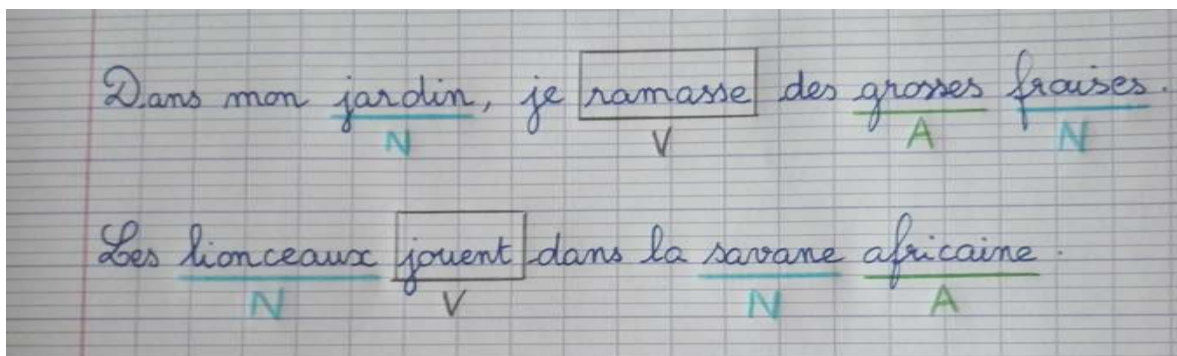 Dans mon jardin, je ramasse des grosses fraises.
N V A N
Les lionceaux jouent dans la savane africaine.
N V N A